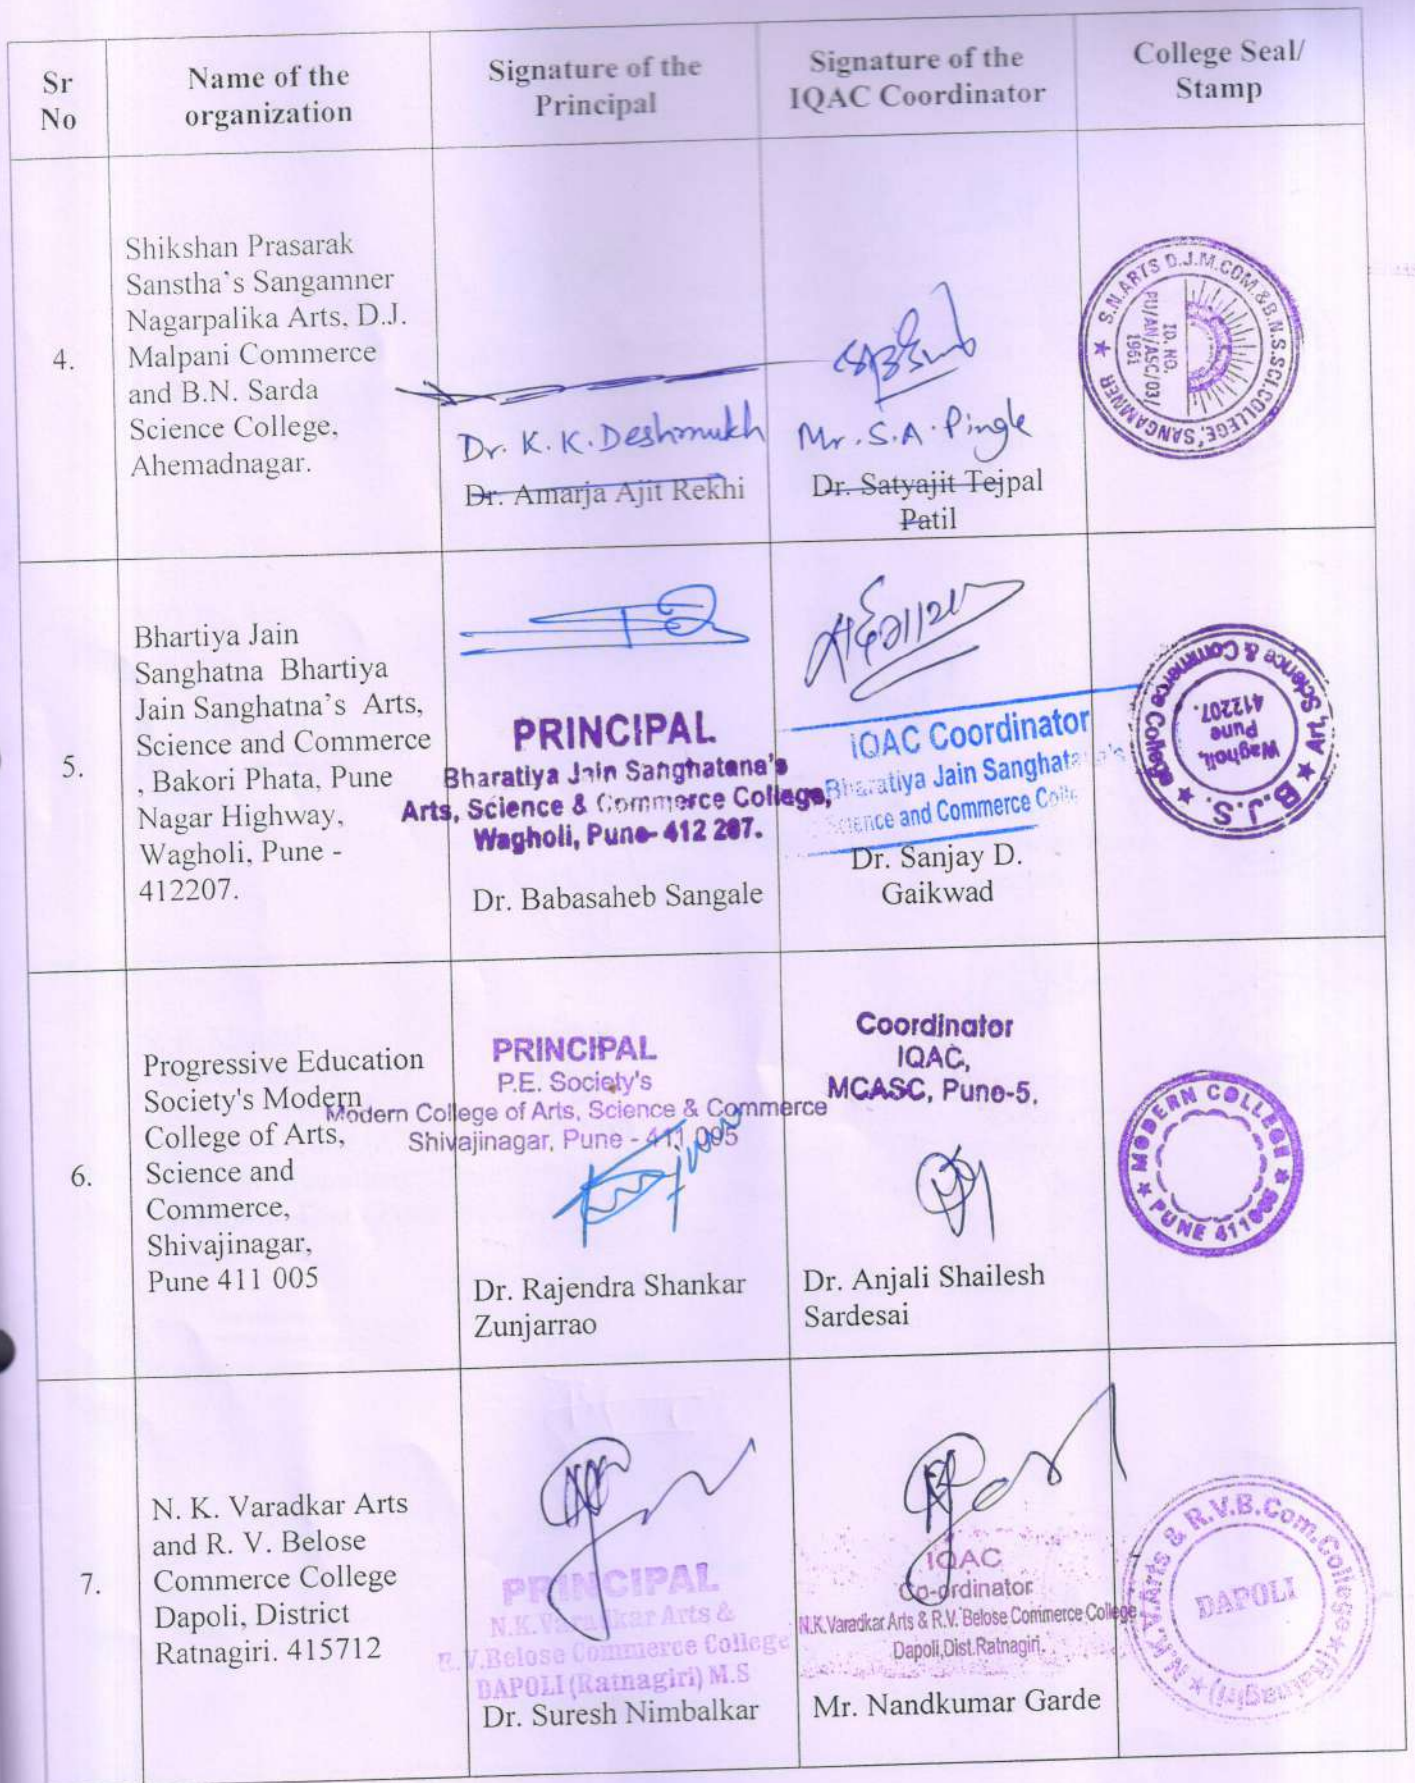 Sr No
Name of the organization
Signature of the Principal
Signature of the IQAC Coordinator
College Seal/ Stamp
4.
Shikshan Prasarak
Sanstha's Sangamner
Nagarpalika Arts, D.J.
Malpani Commerce
and B.N. Sarda
Science College,
Ahemadnagar.
Dr. K. K. Deshmukh
Dr. Amarja Ajit Rekhi
Mr. S.A. Pingle
Dr. Satyajit Tejpal
Patil
★ S.N.ARTS D.J.M.COM.&B.N.S.SCI.COLLEGE, SANGAMNER
ID. NO.
PU/AN/ASC/03/
1961
5.
Bhartiya Jain
Sanghatna Bhartiya
Jain Sanghatna's Arts,
Science and Commerce
, Bakori Phata, Pune
Nagar Highway,
Wagholi, Pune -
412207.
PRINCIPAL
Bharatiya Jain Sanghatana's
Arts, Science & Commerce College,
Wagholi, Pune- 412 207.
Dr. Babasaheb Sangale
IQAC Coordinator
Bharatiya Jain Sanghatana's
Science and Commerce Colle
Dr. Sanjay D.
Gaikwad
★ B.J.S. ★ Art, Science & Commerce College
Wagholi,
Pune
412207.
6.
Progressive Education
Society's Modern
College of Arts,
Science and
Commerce,
Shivajinagar,
Pune 411 005
PRINCIPAL
P.E. Society's
Modern College of Arts, Science & Commerce
Shivajinagar, Pune - 411 005
Dr. Rajendra Shankar
Zunjarrao
Coordinator
IQAC,
MCASC, Pune-5.
Dr. Anjali Shailesh
Sardesai
★ MODERN COLLEGE ★
PUNE 411005
7.
N. K. Varadkar Arts
and R. V. Belose
Commerce College
Dapoli, District
Ratnagiri. 415712
PRINCIPAL
N.K.Varadkar Arts &
R.V.Belose Commerce College
DAPOLI (Ratnagiri) M.S
Dr. Suresh Nimbalkar
IQAC
Co-ordinator
N.K.Varadkar Arts & R.V. Belose Commerce College
Dapoli,Dist.Ratnagiri.
Mr. Nandkumar Garde
N.K.V.Arts & R.V.B.Com.College★(Ratnagiri)★
DAPOLI